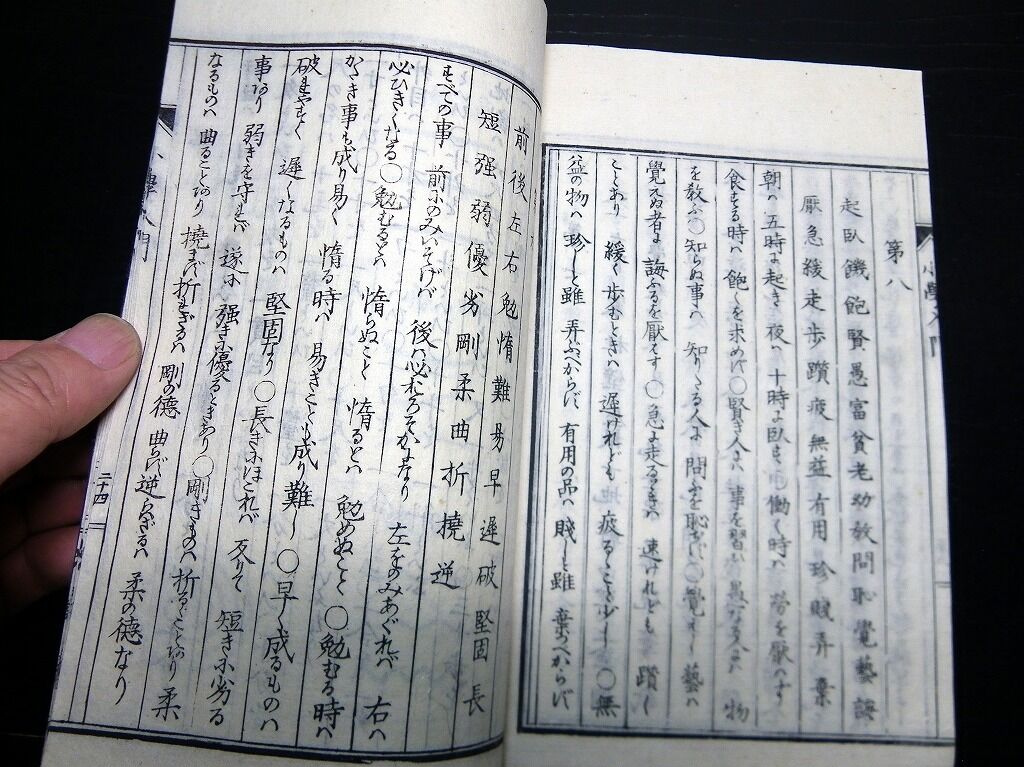 第八
起臥饑飽賢愚富貧老幼教問恥覺藝誨
厭急緩走歩躓疲無益有用珍賤弄棄
朝ハ 五時よ起き 夜ハ 十時よ臥すも 働く時ハ 勞を厭ハず
食する時ハ 飽くを求めず○賢き人よハ 事を習ひ 愚なる人よハ 物
を教ふ○知らぬ事ハ 知りたる人よ 問ふを恥ぢず○覺えし 藝ハ
覺えぬ者よ 誨ふるを厭ハず ○急よ走るときハ 速けれども 躓く
ことあり 緩く 歩むときハ 遲けれども 疲ることと少し ○無
益の物ハ 珍しと雖 弄ぶべからず 有用の品ハ 賤しと雖 棄つべからず
前後左右勉惰難易早遲破堅固長
短强弱優劣剛柔曲折撓逆
すべての事 前にのみいそげバ 後ハ必おろそかなり 左をのみあぐれバ 右ハ
必ひきくなる○勉むるとハ 惰らぬこと 惰るとハ 勉めぬことく○勉むる時ハ
かたき事も成り易く 惰る時ハ 易きことも成り難し○早く成るものハ
破れやすく 遲くなるものハ 堅固なり○長きにほこれバ 反りて 短きに劣る
事あり 弱きを守れバ 逆に 强きに優るときあり○剛きものハ 折ることあり 柔
なるものハ 曲ることあり 撓まず折れざるハ 剛の德 曲らず逆らハざるハ 柔の德なり
二十四